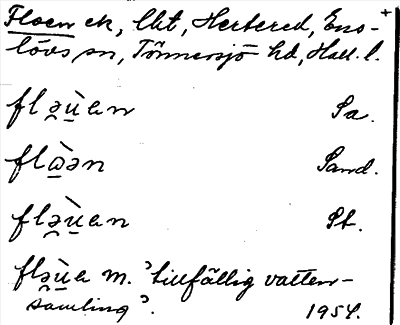 Floen ek, lht, Hertered, Ens- +
lövs sn, Tönnersjö hd, Hall. l.
flə̯ù̱ən Sa.
flὼ̱ən Sand.
flə̯ù̱ən St.
flə̯ù̱ə m. ’tillfällig vatten-
samling’. 1954.